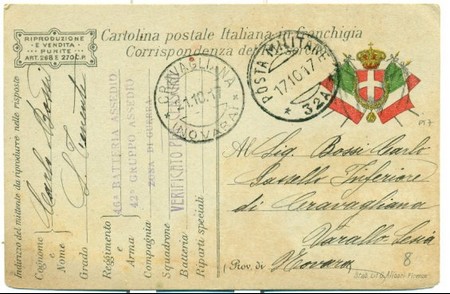 RIPRODUZIONE
E VENDITA
PUNITE
ART. 288 E 270 C.P.
Cartolina postale Italiana in Franchigia
Corrispondenza del
CRAVAGLIANA
.10.17
(NOVARA)
POSTA MILITARE
17.10.17.
32A
Indirizzo del mittente da riprodurre nelle risposte
Cognome e Nome
Carlo Bossi
Grado
Reggimento e Arma
Compagnia
Squadrone
Batteria
Riparti speciali
46a BATTERIA ASSEDIO
42° GRUPPO ASSEDIO
ZONA DI GUERRA
VERIFICATO PER CENSURA
Al Sig. Bossi Carlo
Sasello Inferiore
di Cravagliana
Varallo Sesia
Prov. di Novara
8